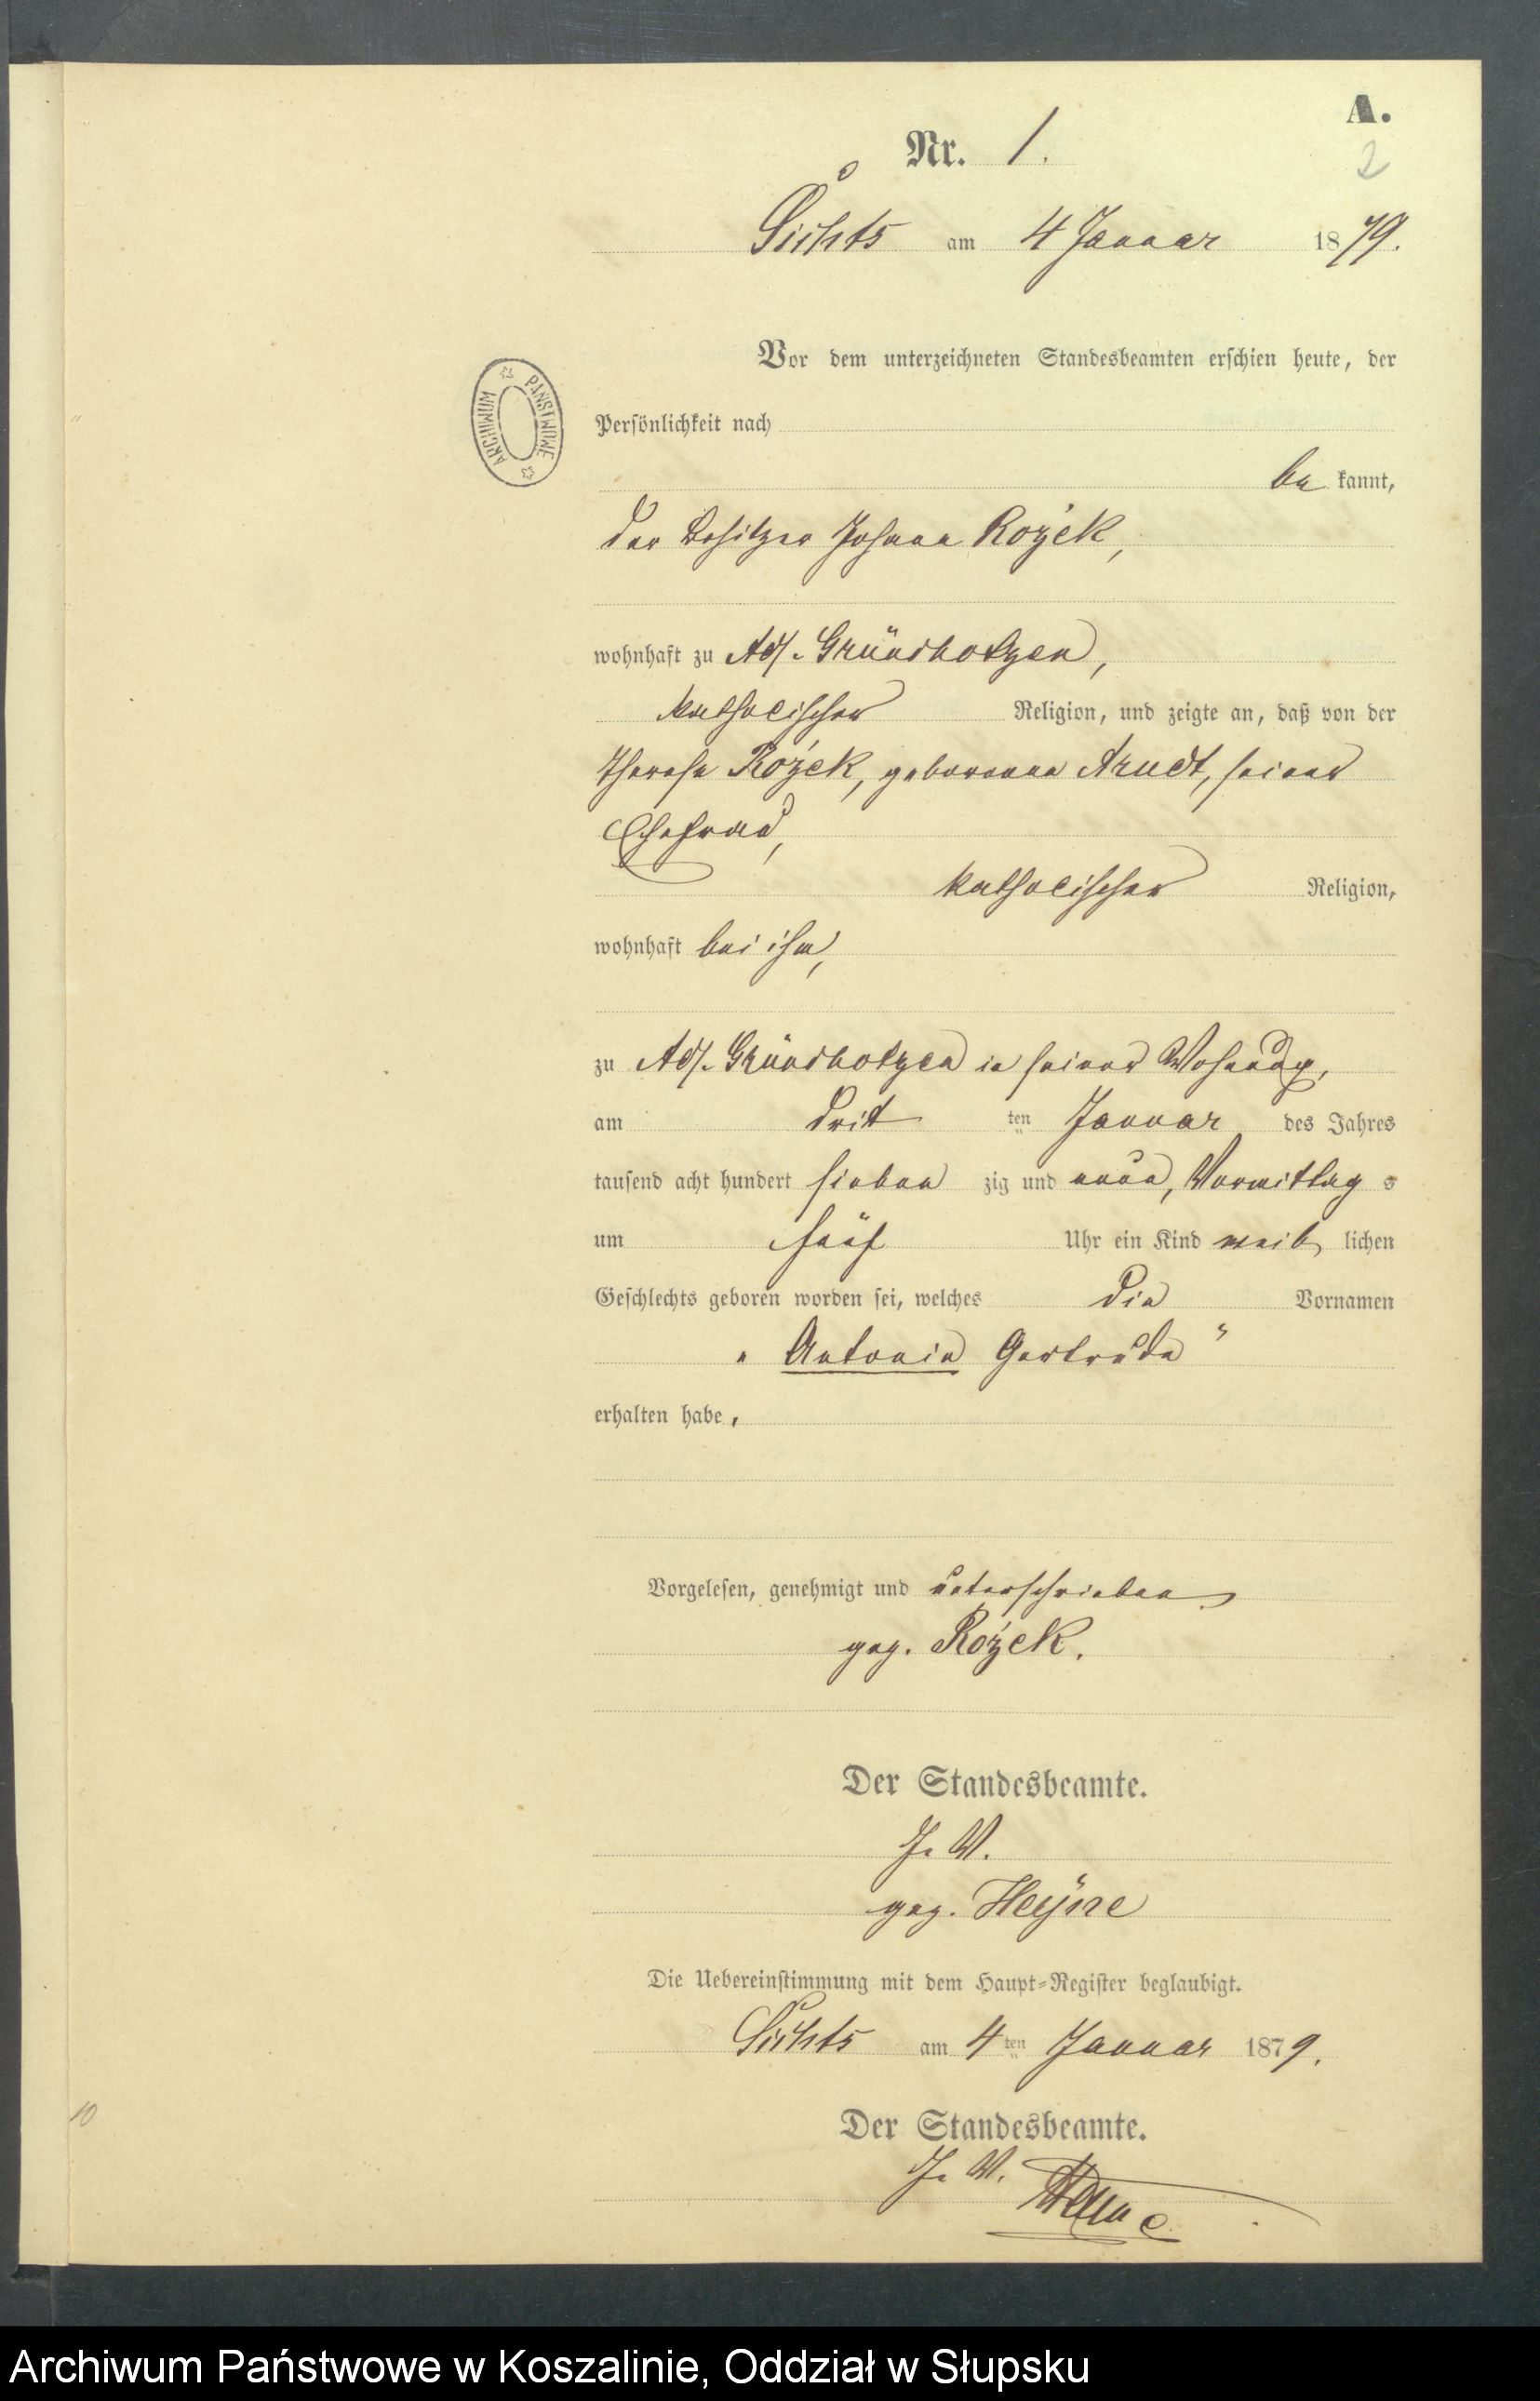 A.
Nr. 1.
2
am 4 Januar 1879.
Vor dem unterzeichneten Standesbeamten erschien heute, der
Persönlichkeit nach
ARCHIWUM PAŃSTWOWE
be kannt,
der Besitzer Johann Rożek,
wohnhaft zu Adl. Gründhotzen,
katholischer Religion, und zeigte an, daß von der
Therese Rożek, geborenen Arndt, seiner
Ehefrau,
katholischer Religion,
wohnhaft bei ihm,
zu Adl. Gründhotzen in seiner Wohnung,
am dritten Januar des Jahres
tausend acht hundert sieben zig und neun, Vormittags
um fünf Uhr ein Kind weib lichen
Geschlechts geboren worden sei, welches die Vornamen
„Antonie Gertrude"
erhalten habe.
Vorgelesen, genehmigt und unterschrieben
gez. Rożek.
Der Standesbeamte.
J. V.
gez. Heyne
Die Uebereinstimmung mit dem Haupt-Register beglaubigt.
am 4ten Januar 1879.
Der Standesbeamte.
J. V. Heyne
10
Archiwum Państwowe w Koszalinie, Oddział w Słupsku